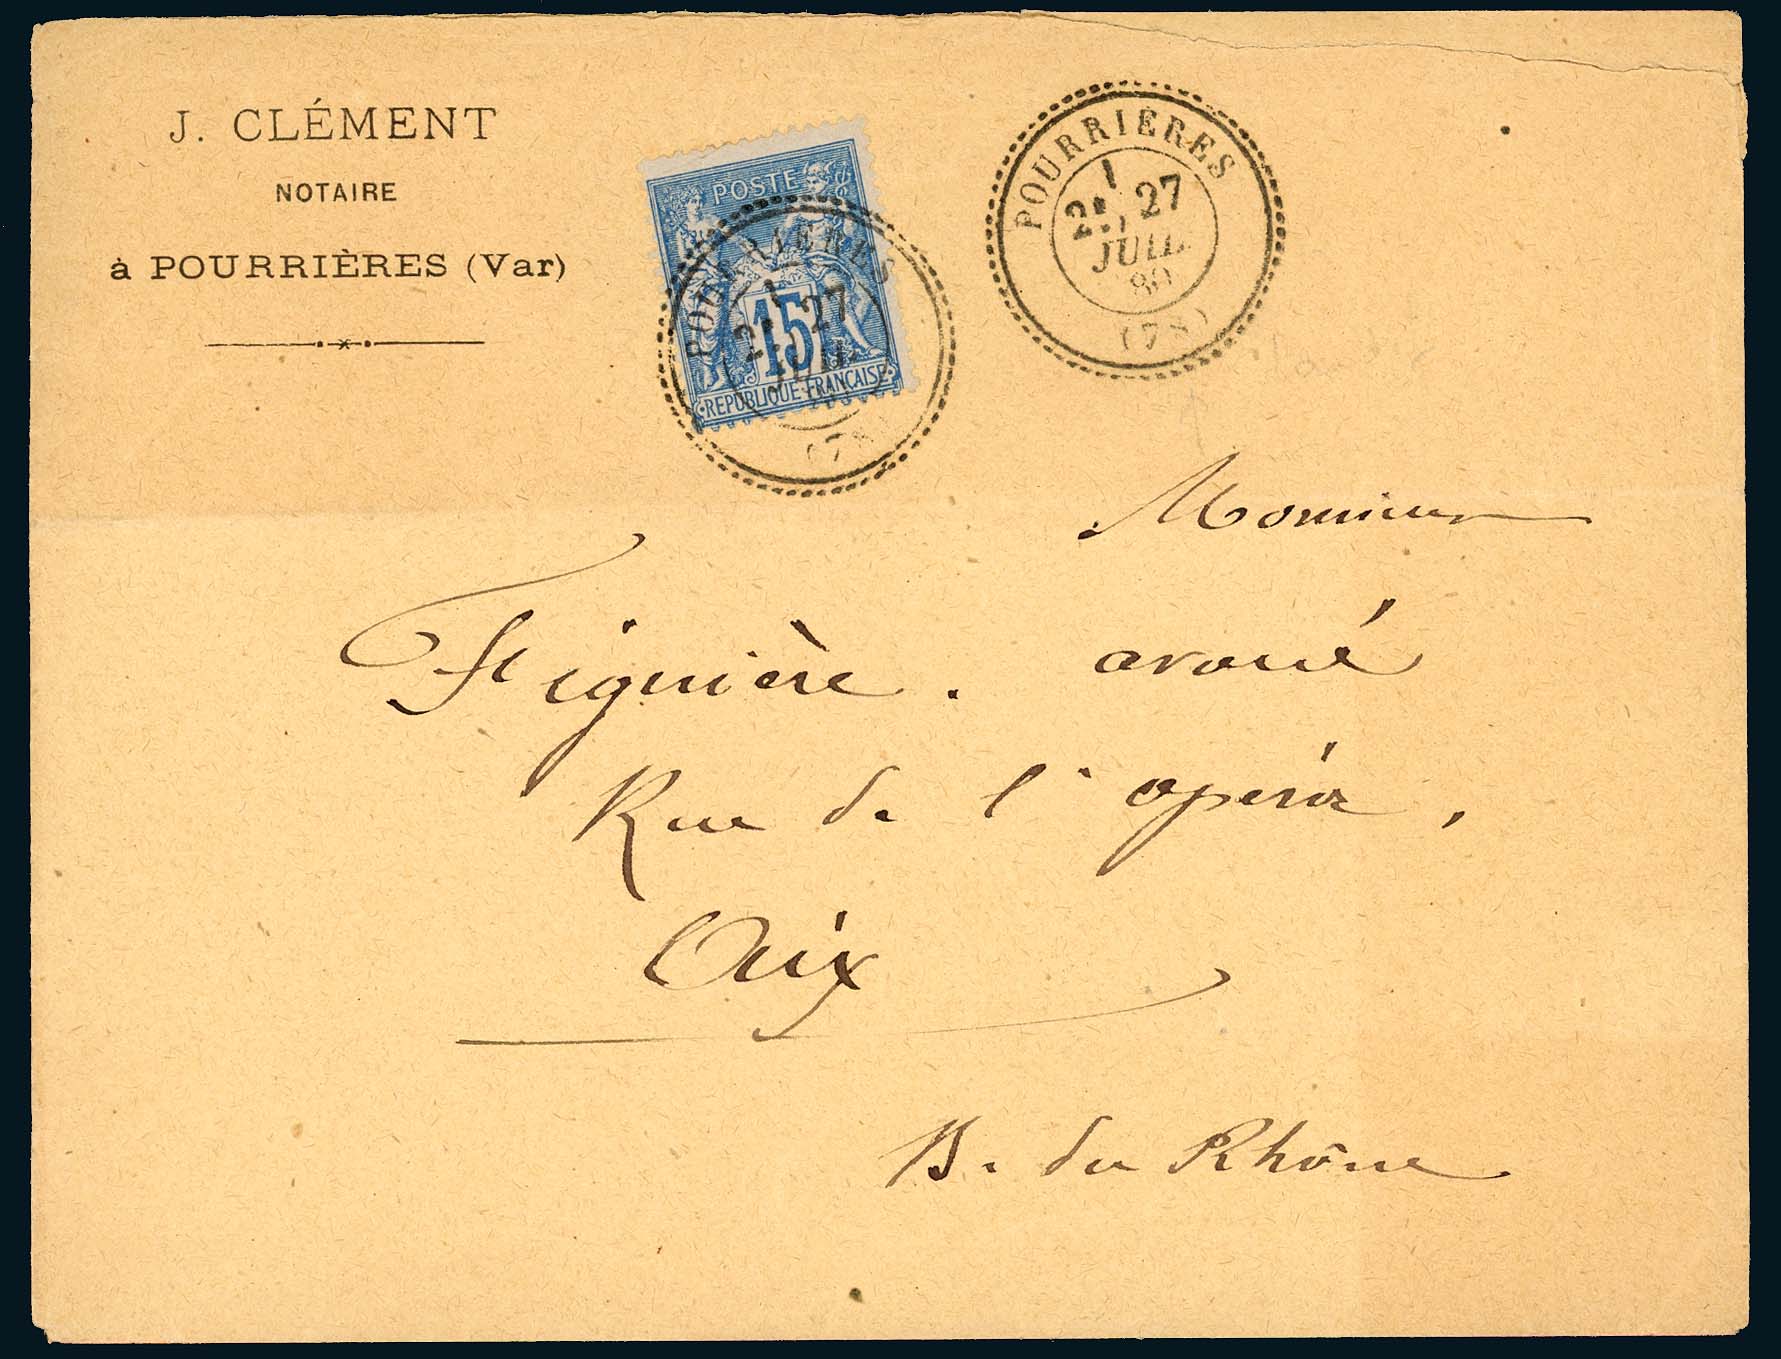 J. CLÉMENT
NOTAIRE
à POURRIÈRES (Var)
POSTE
15
REPUBLIQUE FRANÇAISE
POURRIÈRES
2E 27
JUIL.
(78)
POURRIÈRES
2E 27
JUIL.
80
(78)
Monsieur
Feignière. avoué
Rue de l'opéra,
Aix
B. du Rhône